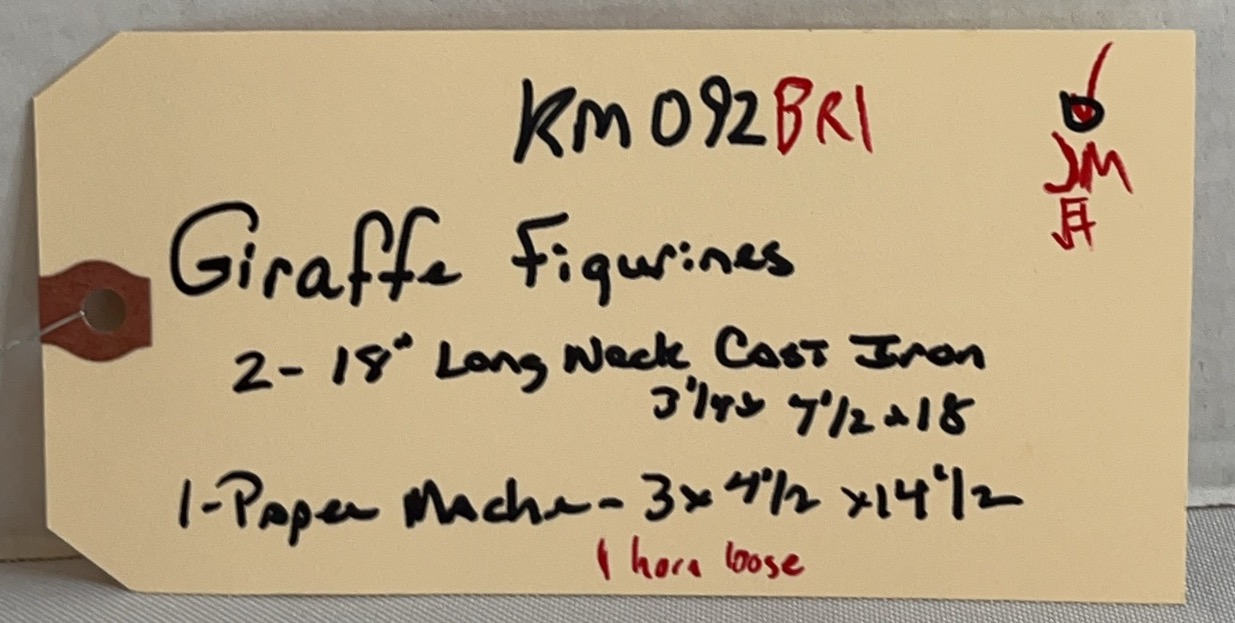 KM092BR1
JM
Giraffe Figurines
2-18" Long Neck Cast Iron
3 1/4 x 7 1/2 x 18
1-Paper Mache- 3 x 4 1/2 x 14 1/2
1 horn loose